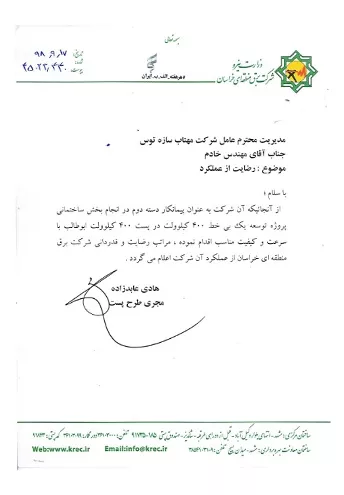 بسمه تعالی
وزارت نیرو
شرکت برق منطقه‌ای خراسان
۹۸,۹,۱۷
۴۵۰۲۲,۳۴۰
مدیریت محترم عامل شرکت مهتاب سازه توس
جناب آقای مهندس خادم
موضوع : رضایت از عملکرد
با سلام ؛
از آنجائیکه آن شرکت به عنوان پیمانکار دسته دوم در انجام بخش ساختمانی
پروژه توسعه یک بی خط ۴۰۰ کیلوولت در پست ۴۰۰ کیلوولت ابوطالب با
سرعت و کیفیت مناسب اقدام نموده ، مراتب رضایت و قدردانی شرکت برق
منطقه ای خراسان از عملکرد آن شرکت اعلام می گردد .
هادی عابدزاده
مجری طرح پست
Web:www.krec.ir Email:info@krec.ir